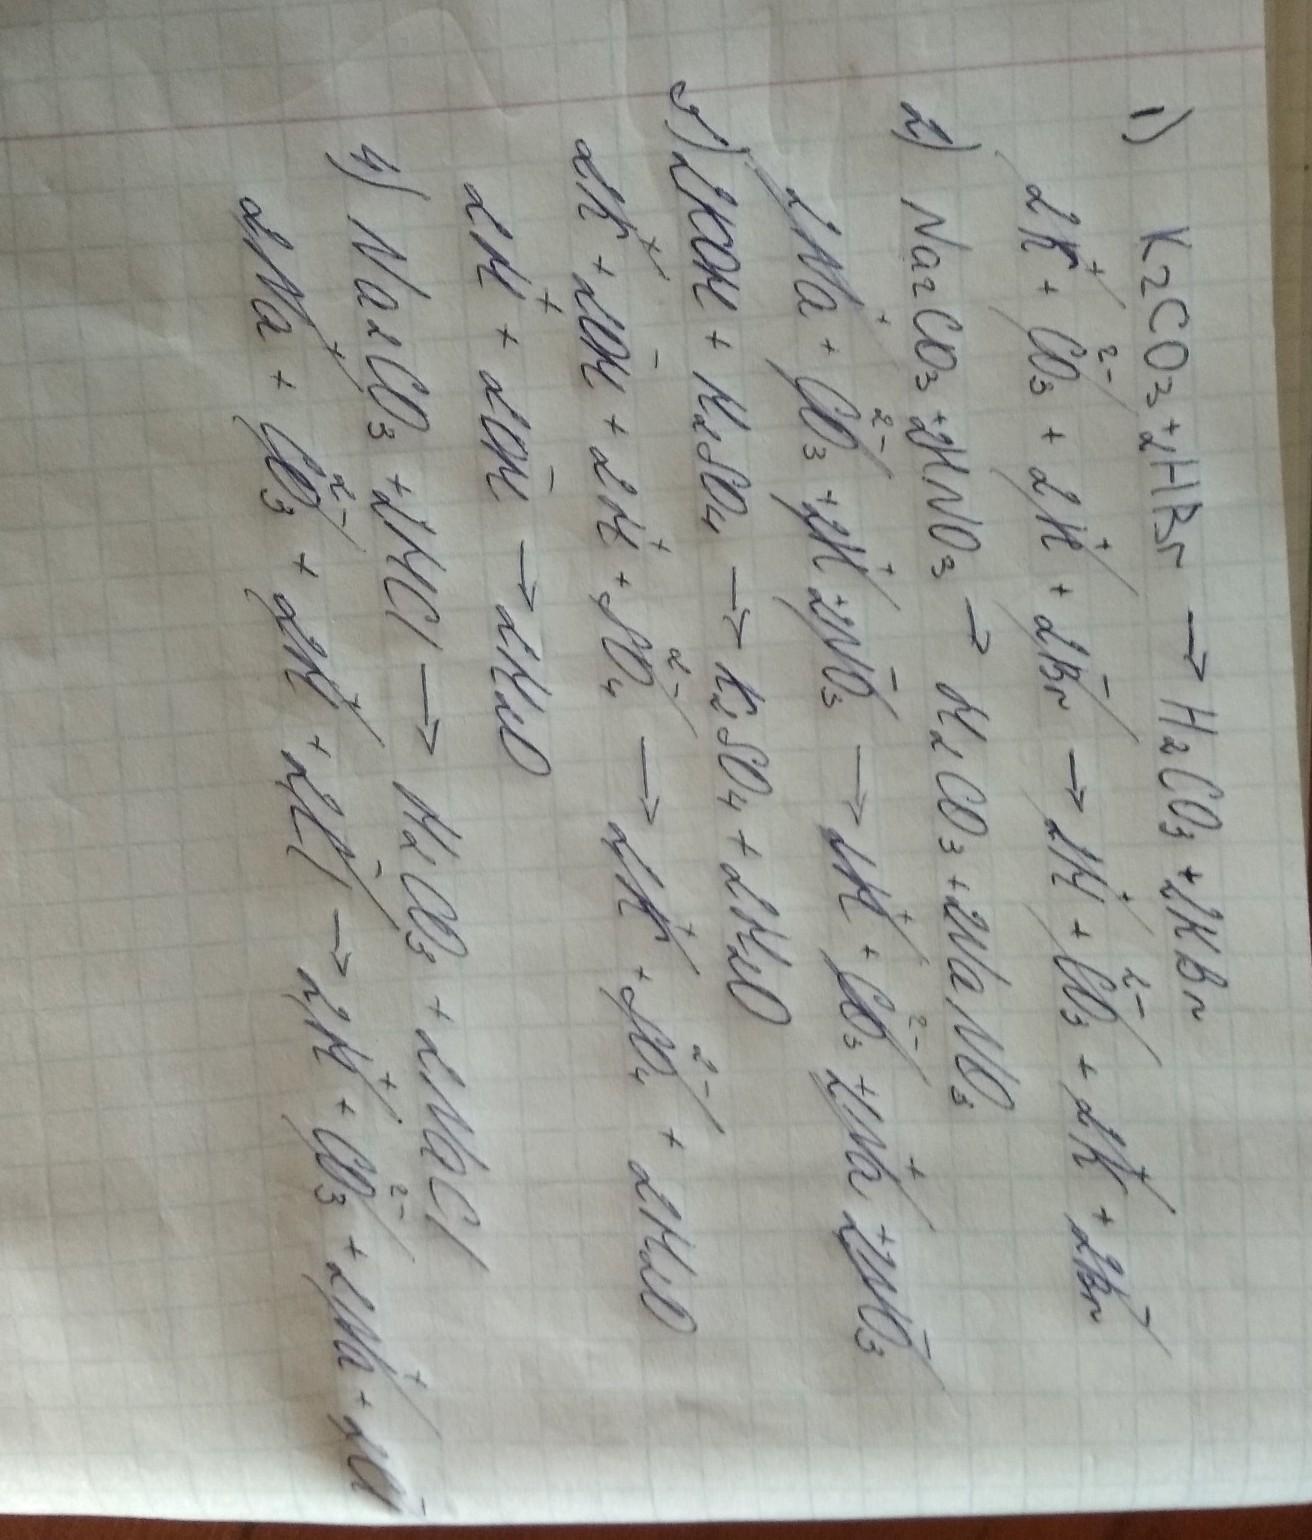 1) K₂CO₃ + 2HBr → H₂CO₃ + 2KBr
2K⁺ + CO₃²⁻ + 2H⁺ + 2Br⁻ → 2H⁺ + CO₃²⁻ + 2K⁺ + 2Br⁻
2) Na₂CO₃ + 2HNO₃ → H₂CO₃ + 2NaNO₃
2Na⁺ + CO₃²⁻ + 2H⁺ + 2NO₃⁻ → 2H⁺ + CO₃²⁻ + 2Na⁺ + 2NO₃⁻
3) 2KOH + H₂SO₄ → K₂SO₄ + 2H₂O
2K⁺ + 2OH⁻ + 2H⁺ + SO₄²⁻ → 2K⁺ + SO₄²⁻ + 2H₂O
2H⁺ + 2OH⁻ → 2H₂O
4) Na₂CO₃ + 2HCl → H₂CO₃ + 2NaCl
2Na⁺ + CO₃²⁻ + 2H⁺ + 2Cl⁻ → 2H⁺ + CO₃²⁻ + 2Na⁺ + 2Cl⁻